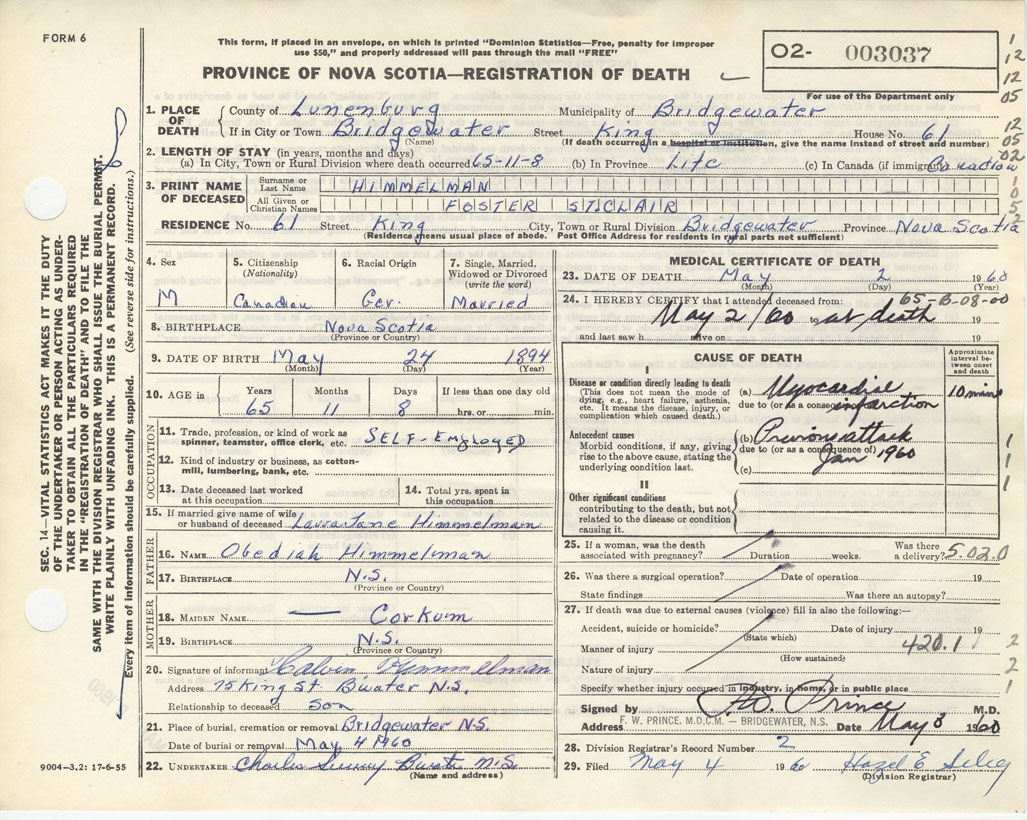 FORM 6
This form, if placed in an envelope, on which is printed "Dominion Statistics—Free, penalty for improper
use $50," and properly addressed will pass through the mail "FREE"
PROVINCE OF NOVA SCOTIA—REGISTRATION OF DEATH
O2- 003037
For use of the Department only
1. PLACE OF DEATH County of Lunenburg Municipality of Bridgewater
If in City or Town Bridgewater Street King House No. 61
(Name) (If death occurred in a hospital or institution, give the name instead of street and number)
2. LENGTH OF STAY (in years, months and days)
(a) In City, Town or Rural Division where death occurred 65-11-8 (b) In Province Life (c) In Canada (if immigrant)
3. PRINT NAME OF DECEASED Surname or Last Name HIMMELMAN
All Given or Christian Names FOSTER ST.CLAIR
RESIDENCE No. 61 Street King City, Town or Rural Division Bridgewater Province Nova Scotia
(Residence means usual place of abode. Post Office Address for residents in rural parts not sufficient)
4. Sex M
5. Citizenship (Nationality) Canadian
6. Racial Origin Ger.
7. Single, Married, Widowed or Divorced (write the word) Married
8. BIRTHPLACE Nova Scotia
(Province or Country)
9. DATE OF BIRTH May 24 1894
(Month) (Day) (Year)
10. AGE in Years Months Days If less than one day old
65 11 8 hrs. or min.
OCCUPATION
11. Trade, profession, or kind of work as spinner, teamster, office clerk, etc. SELF-EMPLOYED
12. Kind of industry or business, as cotton-mill, lumbering, bank, etc.
13. Date deceased last worked at this occupation
14. Total yrs. spent in this occupation
15. If married give name of wife or husband of deceased Laura Jane Himmelman
FATHER
16. NAME Obediah Himmelman
17. BIRTHPLACE N.S.
(Province or Country)
MOTHER
18. MAIDEN NAME — Corkum
19. BIRTHPLACE N.S.
(Province or Country)
20. Signature of informant Calvin Himmelman
Address 75 King St B'water N.S.
Relationship to deceased son
21. Place of burial, cremation or removal Bridgewater N.S.
Date of burial or removal May 4 1960
22. UNDERTAKER Charles
(Name and address)
MEDICAL CERTIFICATE OF DEATH
23. DATE OF DEATH May 2 1960
(Month) (Day) (Year)
24. I HEREBY CERTIFY that I attended deceased from:
May 2/60 to at death 19
and last saw h alive on 19
CAUSE OF DEATH
Approximate interval between onset and death
I
Disease or condition directly leading to death
(This does not mean the mode of dying, e.g., heart failure, asthenia, etc. It means the disease, injury, or complication which caused death.)
(a) Myocardial 10 mins
due to (or as a consequence of) infarction
Antecedent causes
Morbid conditions, if any, giving rise to the above cause, stating the underlying condition last.
(b) Previous attack
due to (or as a consequence of) Jan 1960
(c)
II
Other significant conditions
contributing to the death, but not related to the disease or condition causing it.
25. If a woman, was the death associated with pregnancy? Duration weeks. Was there a delivery? 5.02.0
26. Was there a surgical operation? Date of operation 19
State findings Was there an autopsy?
27. If death was due to external causes (violence) fill in also the following:—
Accident, suicide or homicide? Date of injury 19
(State which)
Manner of injury 420.1
(How sustained)
Nature of injury
Specify whether injury occurred in industry, in home, or in public place
Signed by F.W. Prince M.D.
Address F. W. PRINCE. M.D.C.M. – BRIDGEWATER, N.S. Date May 3 1960
28. Division Registrar's Record Number 2
29. Filed May 4 1960 Hazel E
(Division Registrar)
SEC. 14—VITAL STATISTICS ACT MAKES IT THE DUTY
OF THE UNDERTAKER OR PERSON ACTING AS UNDER-
TAKER TO OBTAIN ALL THE PARTICULARS REQUIRED
IN THE "REGISTRATION OF DEATH" AND TO FILE THE
SAME WITH THE DIVISION REGISTRAR WHO SHALL ISSUE THE BURIAL PERMIT.
WRITE PLAINLY WITH UNFADING INK. THIS IS A PERMANENT RECORD.
Every item of information should be carefully supplied. (See reverse side for instructions.)
9004-3.2: 17-6-55